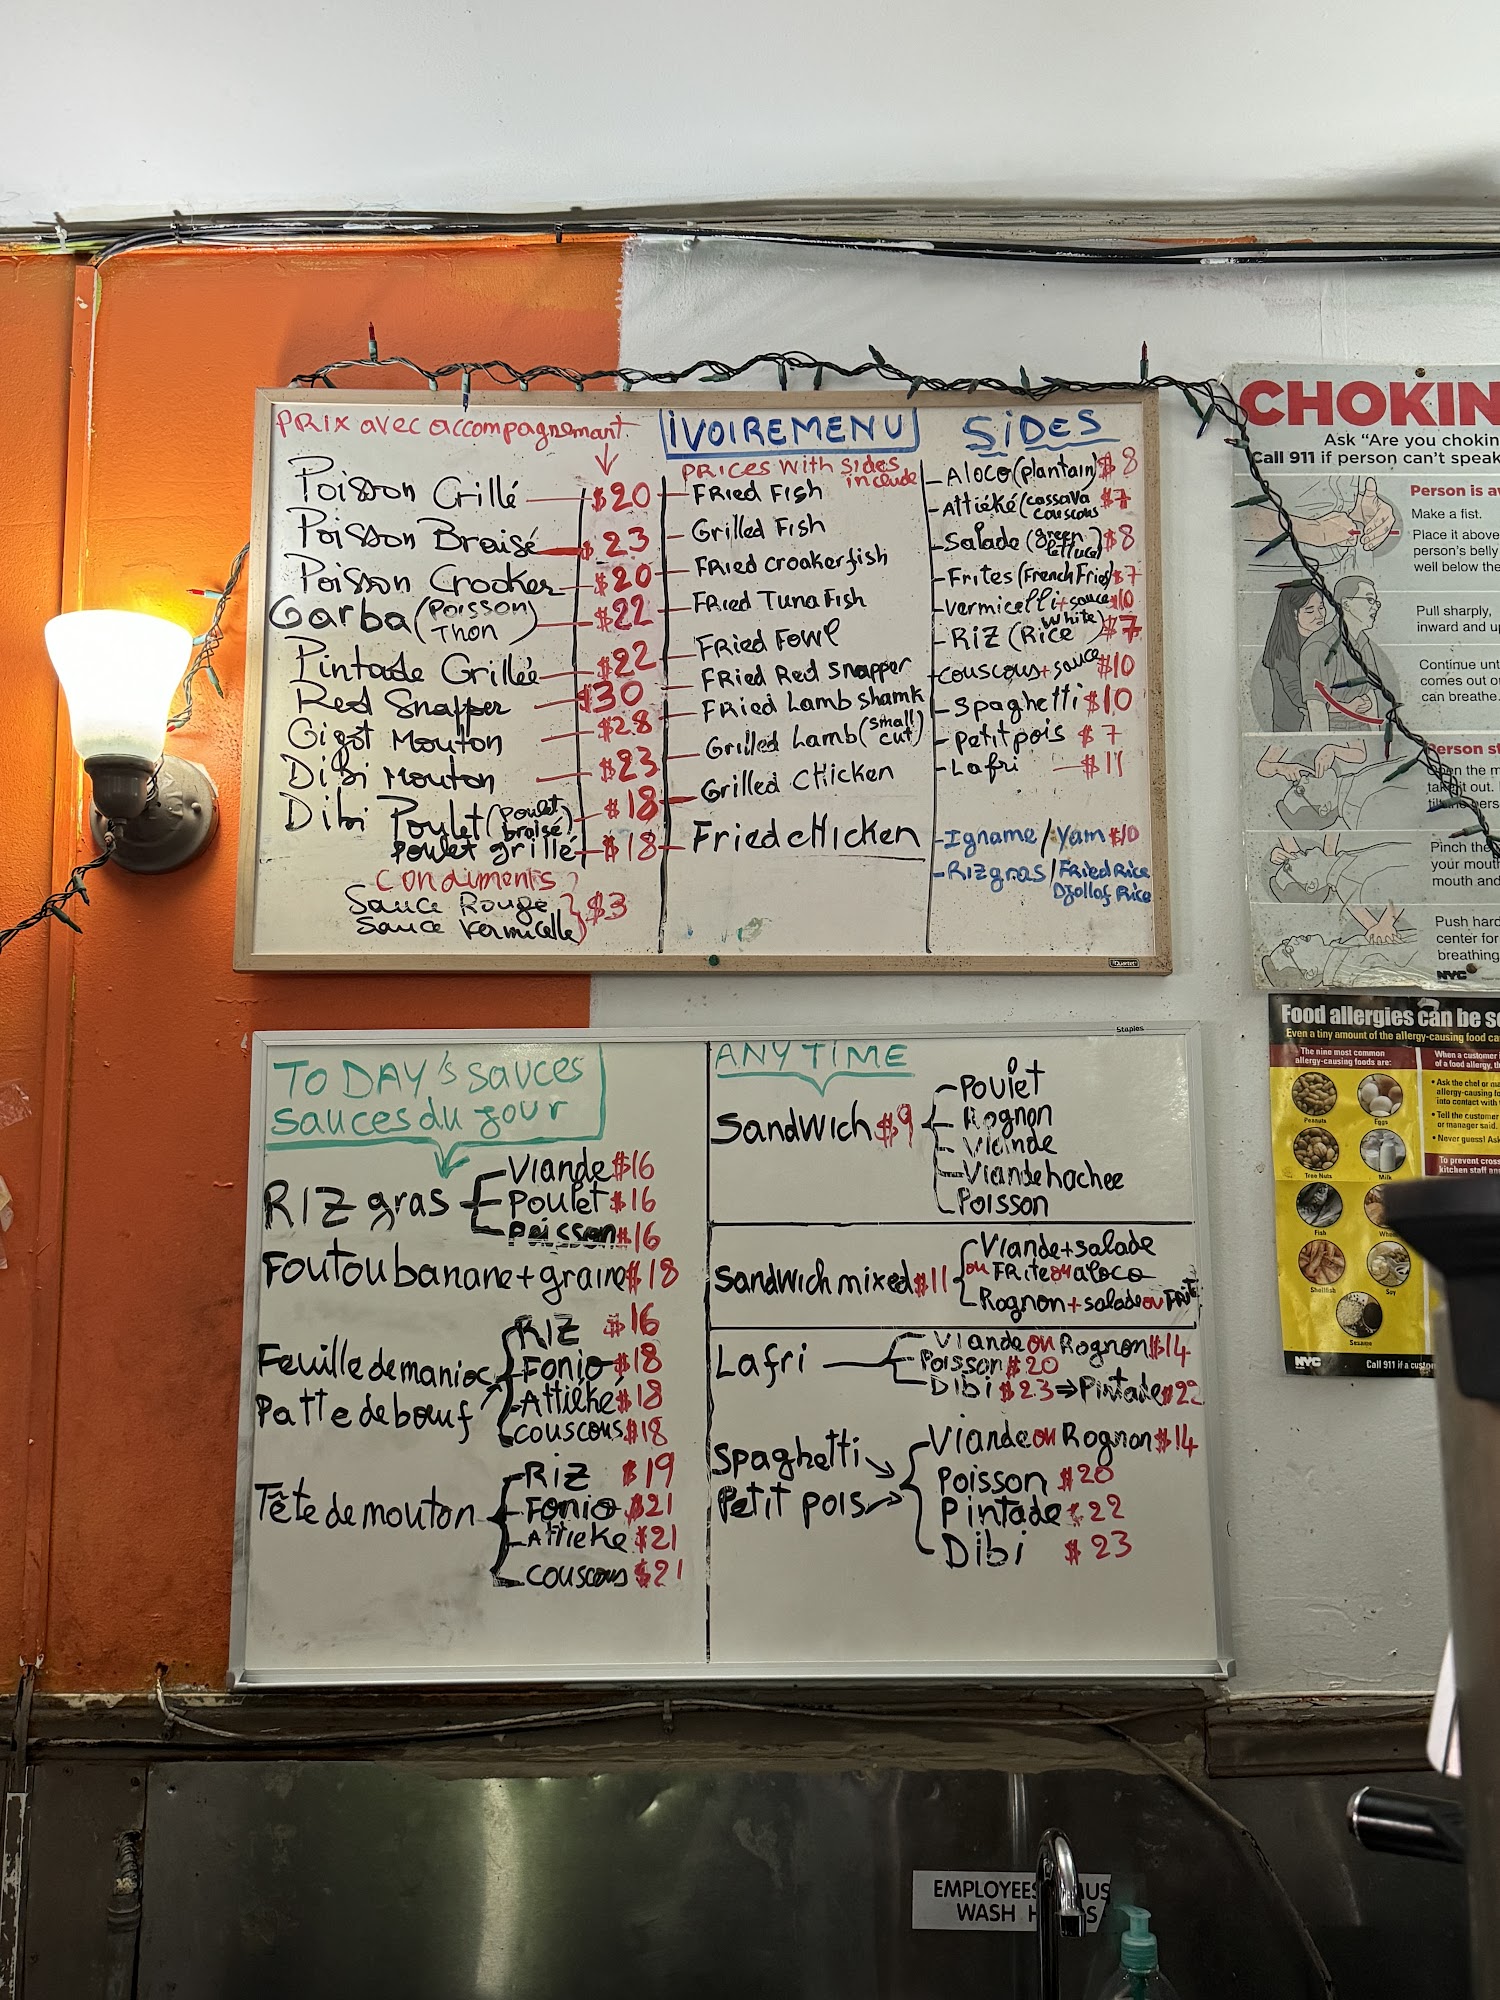 PRIX avec accompagnemant
Poisson Grillé $20
Poisson Braisé $23
Poisson Crocker $20
Garba (Poisson Thon) $22
Pintade Grillée $22
Red Snapper $30
Gigot Mouton $28
Dibi Mouton $23
Dibi Poulet (Poulet braisé) $18
Poulet grillé $18
Condiments
Sauce Rouge
Sauce Vermicelle
$3
IVOIREMENU
PRICES with sides
include
Fried Fish
Grilled Fish
Fried croakerfish
Fried Tuna Fish
Fried Fowl
Fried Red snapper
Fried Lamb shamk
Grilled Lamb (small cut)
Grilled CHicken
Fried cHicken
SIDES
Aloco (plantain) $8
Attiéké (cassava couscous $7
Salade (green lettuce) $8
Frites (French Fries $7
Vermicelli + sauce $10
RIZ (Rice white) $7
couscous + sauce $10
Spaghetti $10
Petit pois $7
Lafri $11
Igname / Yam $10
RIZ gras / Fried Rice
Djollof Rice
TODAY's sauces
sauces du jour
RIZ gras
Viande $16
Poulet $16
Poisson $16
Foutou banane + graine $18
Feuille de manioc
Patte de bœuf
RIZ $16
Fonio $18
Attieké $18
couscous $18
Tête de mouton
RIZ $19
Fonio $21
Attieke $21
couscous $21
ANYTIME
Sandwich $9
Poulet
Rognon
Viande
Viande hachee
Poisson
Sandwich mixed $11
Viande + salade
ou Frite ou aloco
Rognon + salade ou Frite
Lafri
Viande ou Rognon $14
Poisson $20
Dibi $23 ⇒ Pintade $22
Spaghetti
Petit pois
Viande ou Rognon $14
Poisson $20
Pintade $22
Dibi $23
Quartet
Staples
CHOKIN
Ask “Are you chokin
Call 911 if person can't speak
Person is a
Make a fist.
Place it above
person's belly
well below the
Pull sharply,
inward and u
Continue unt
comes out o
can breathe.
Person
pen the m
out.
Pinch the
your mout
mouth and
Push hard
center for
breathing
NYC
Food allergies can be s
Even a tiny amount of the allergy-causing food ca
The nine most common
allergy-causing foods are:
Peanuts
Eggs
Tree Nuts
Milk
Fish
Shellfish
Soy
Sesame
When a customer
of a food allergy, th
• Ask the chef or ma
allergy-causing fo
into contact with
• Tell the customer
or manager said.
• Never guess! Ask
To prevent cross
kitchen staff
NYC
Call 911 if a custo
EMPLOYEES MUS
WASH H S